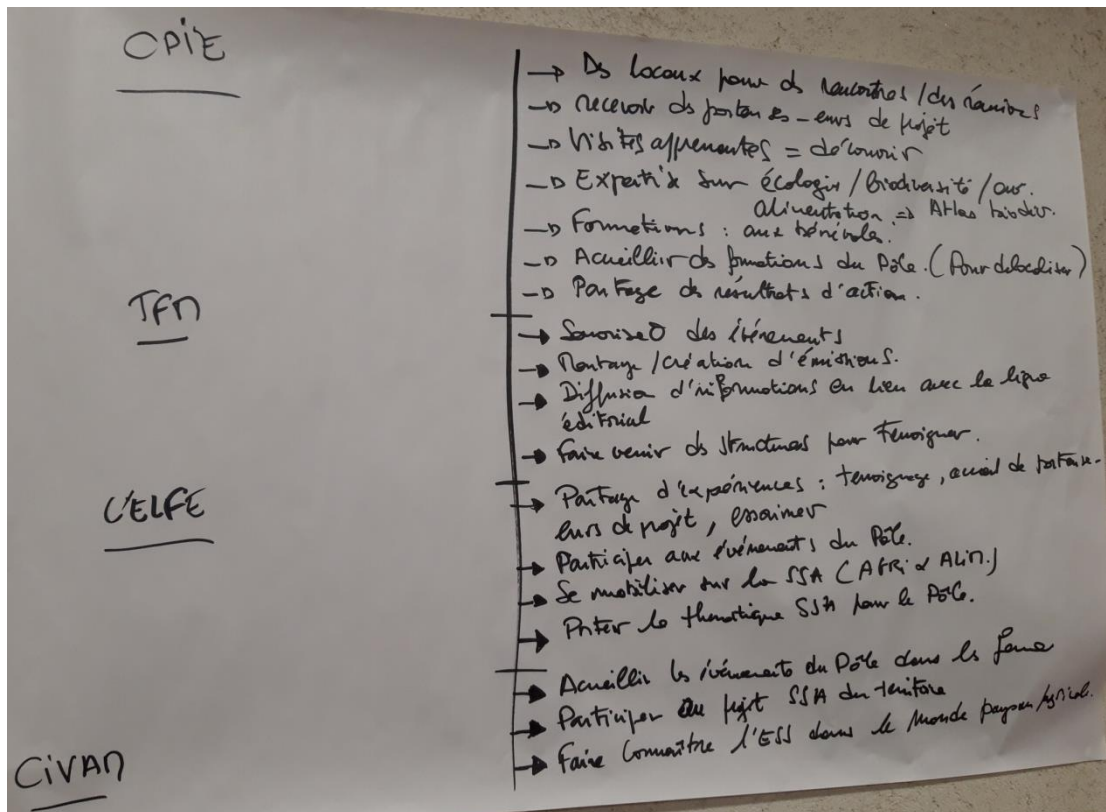 CPIE
→ Ds locaux pour ds rencontres / des réunions
→ recevoir ds porteuses-eurs de projet
→ Visites apprenantes = découvrir
→ Expertise sur écologie / biodiversité /
alimentation => Atlas biodiv.
→ Formations : aux bénévoles.
→ Accueillir ds formations du Pôle. (Pour délocaliser)
→ Partage ds résultats d'action.
TFM
→ des événements
→ Montage / création d'émissions.
→ Diffusion d'informations en lien avec la ligne
éditorial
→ Faire venir ds structures pour témoigner.
L'ELFE
→ Partage d'expériences : temoignage, accueil de porteuse-
eurs de projet, essaimer
→ Participer aux événements du Pôle.
→ Se mobiliser sur la SSA (AGRI & ALIM.)
→ Porter la thématique SSA pour le Pôle.
CIVAM
→ Accueillir les événements du Pôle dans les
→ Participer au projet SSA du territoire
→ Faire connaître l'ESS dans le monde paysan/agricole.